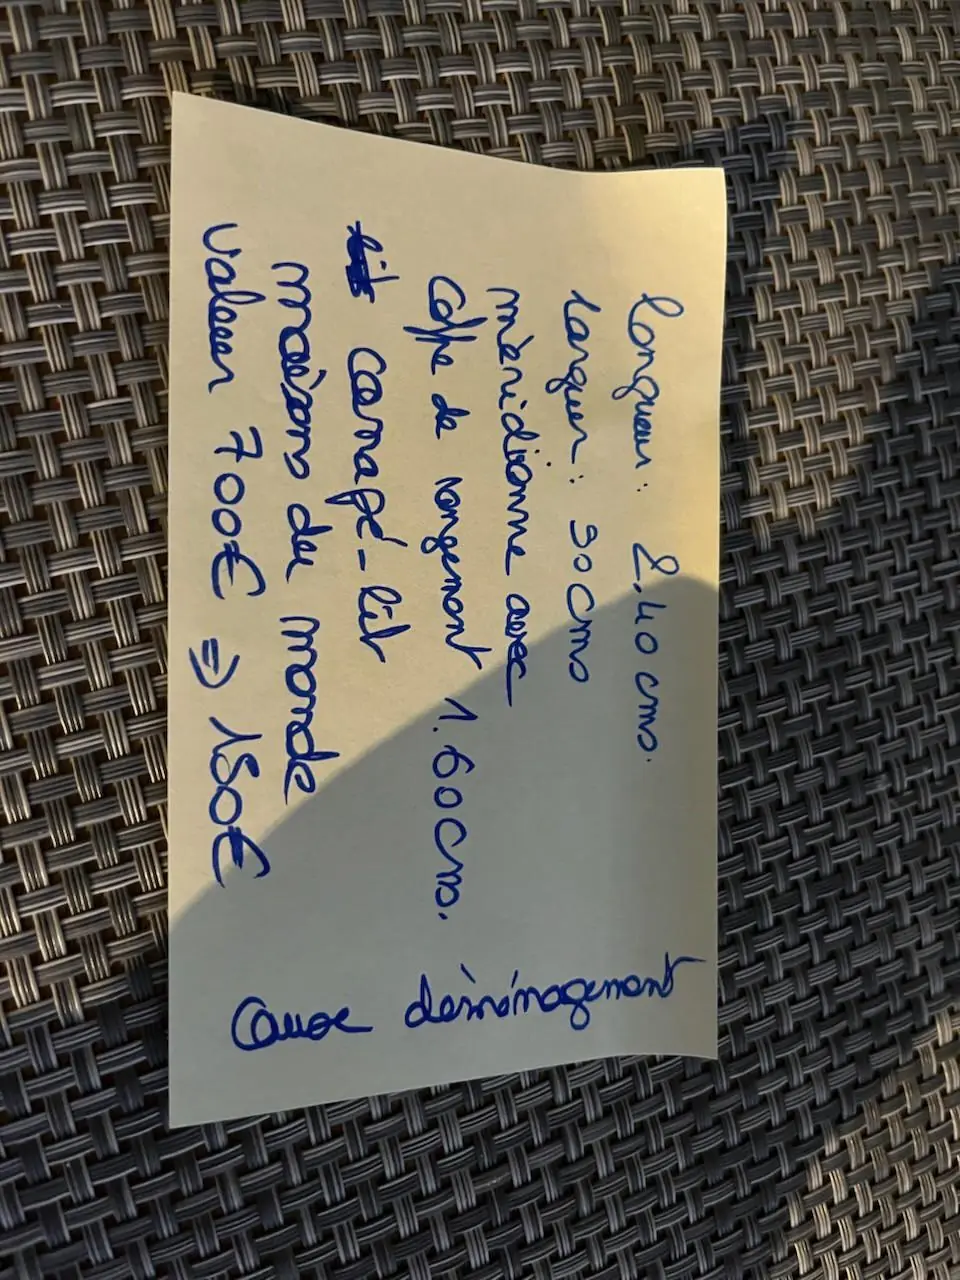 longueur: 2.40 cm.
largeur: 90 cm
méridienne avec
coffre de rangement 1.60 cm.
canapé-lit
maisons du monde
valeur 700€ ⇒ 150€
cause déménagement